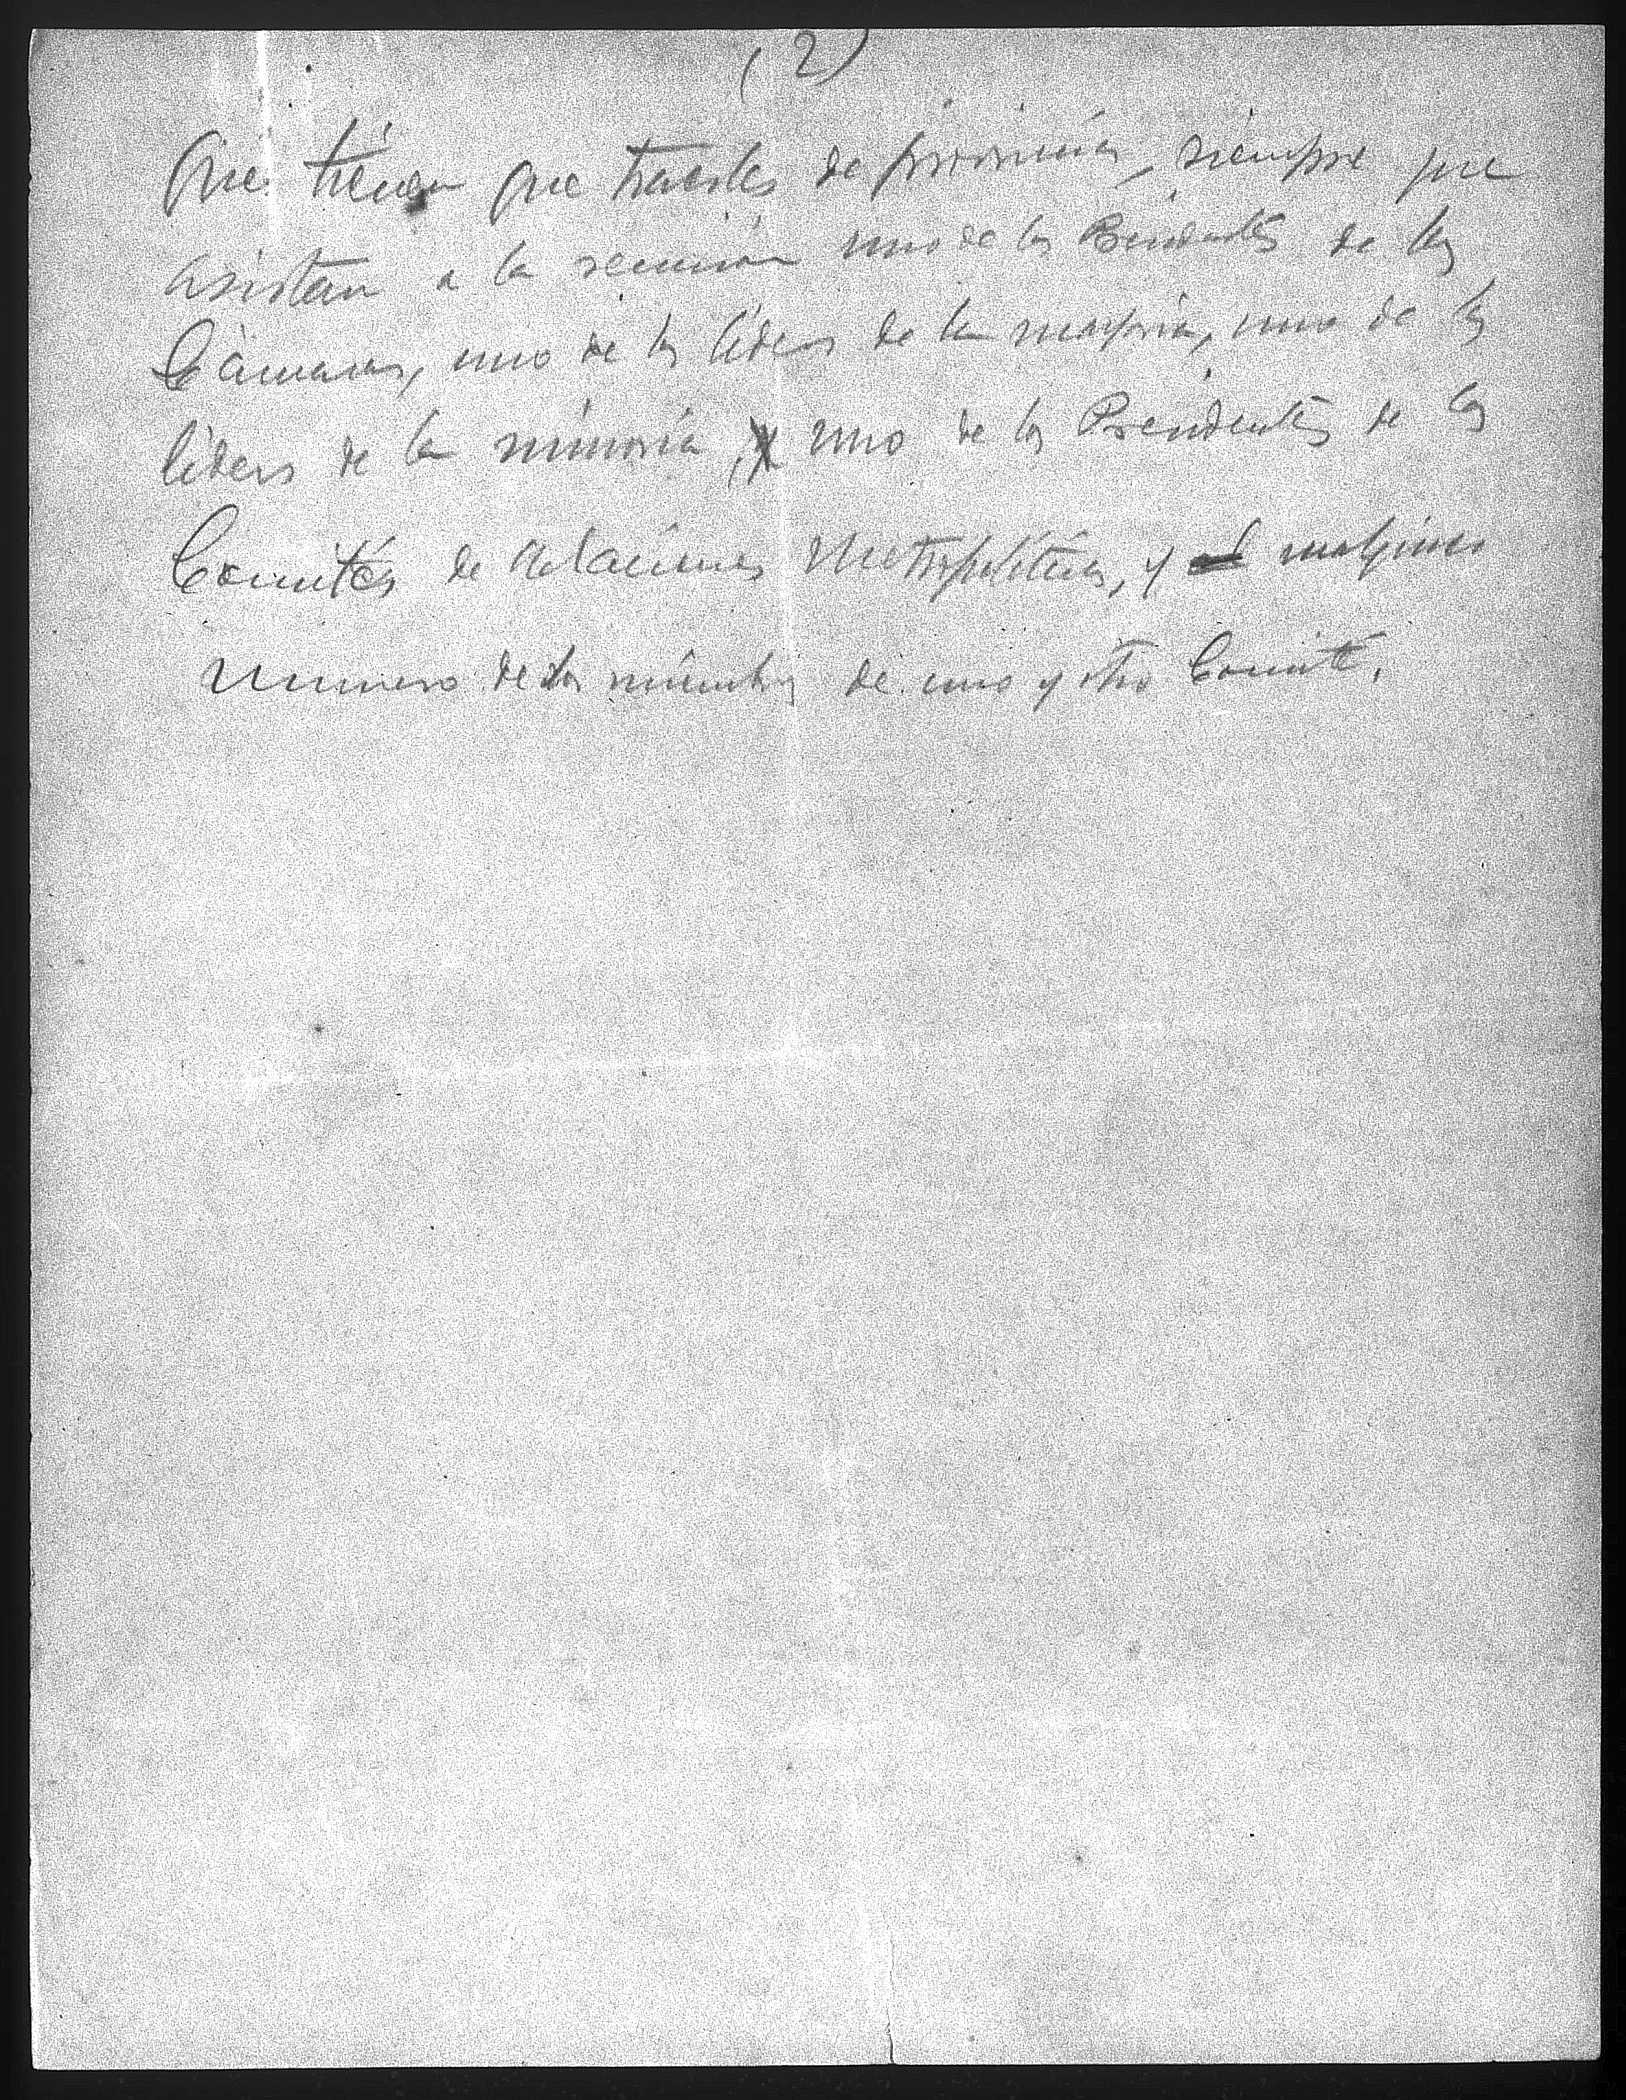 (2)
que tienen que traerles de provincias, siempre que
asistan a la reunión uno de los Presidentes de las
Cámaras, uno de los líders de la mayoría, uno de los
líders de la minoría, uno de los Presidentes de los
Comités de Relaciones Metropolíticas, y
número de los miembros de uno y otro Comité.